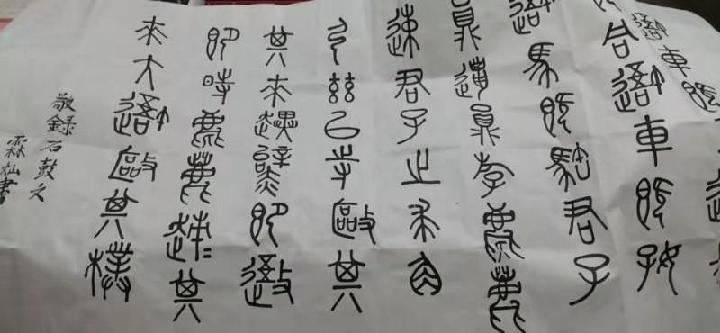 避車既
同避車既好
避馬既𩢿君子
員邋員斿麀鹿
速君子之求角
弓茲以寺敺其
其來趩即避
即時麀鹿趚其
來大避敺其樸
敬錄石鼓文
書